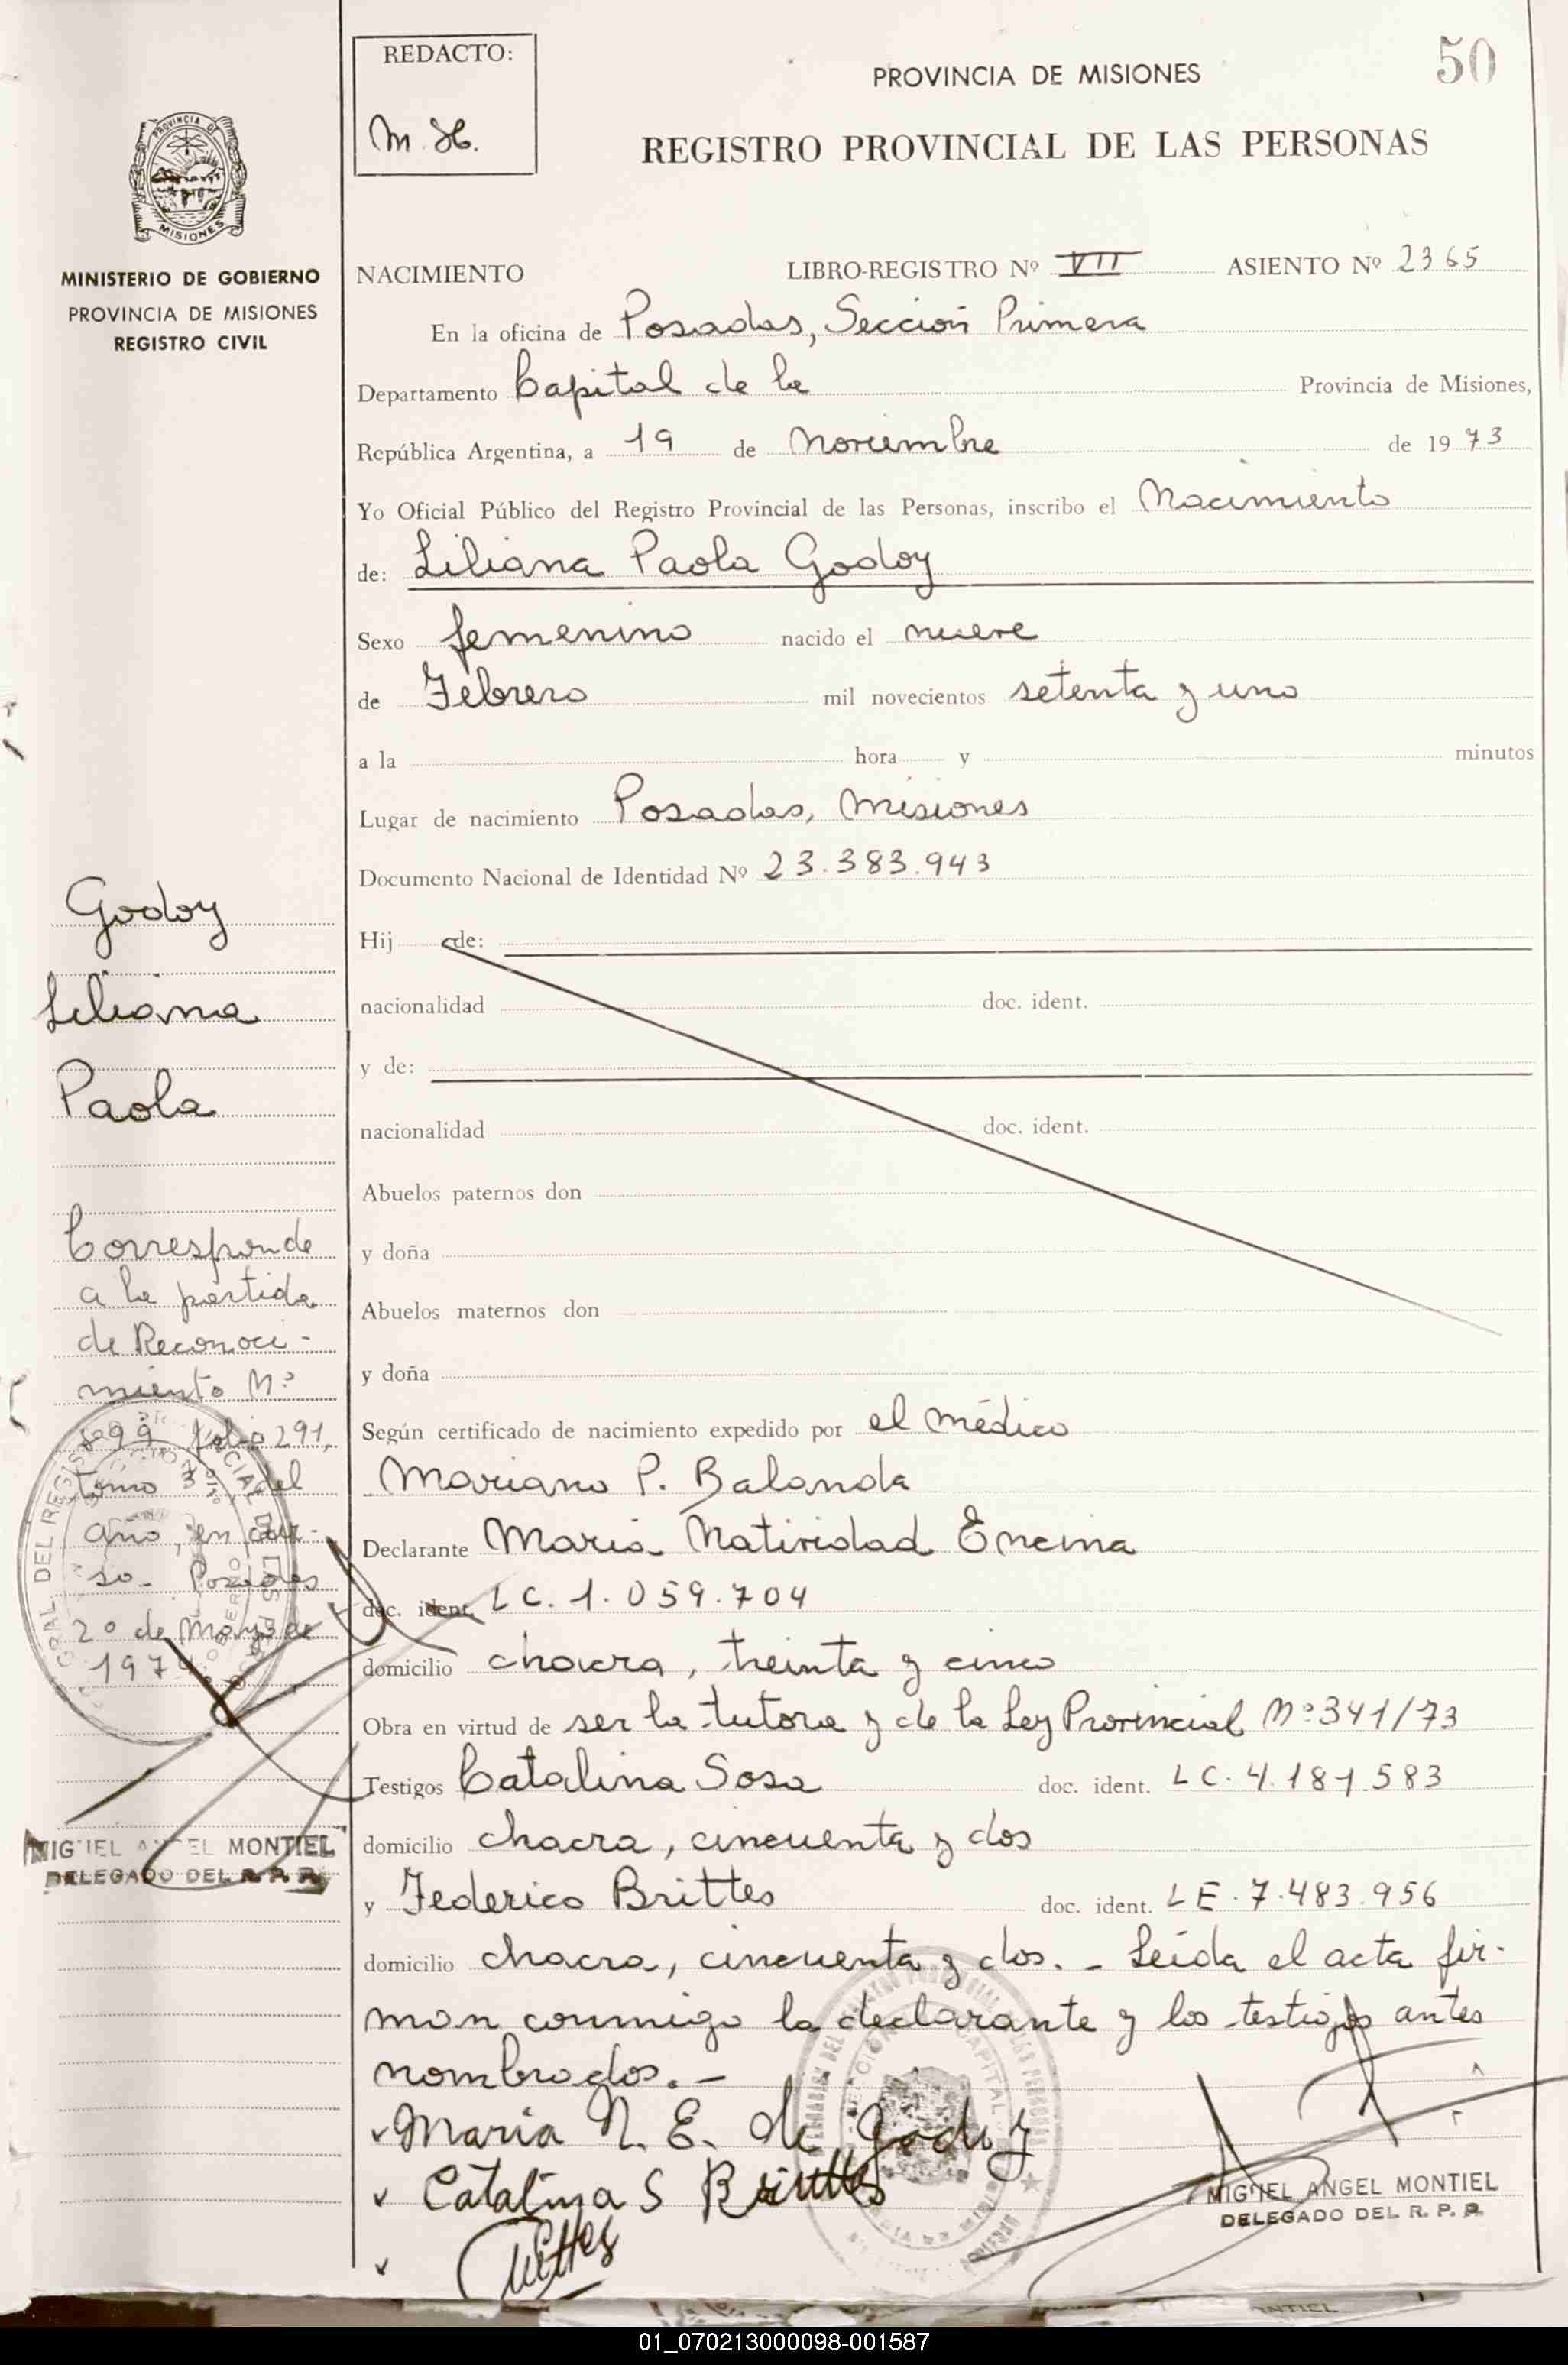 50
REDACTO:
M. H.
PROVINCIA DE MISIONES
REGISTRO PROVINCIAL DE LAS PERSONAS
PROVINCIA DE
MISIONES
MINISTERIO DE GOBIERNO
PROVINCIA DE MISIONES
REGISTRO CIVIL
NACIMIENTO LIBRO-REGISTRO Nº VII ASIENTO Nº 2365
En la oficina de Posadas, Sección Primera
Departamento Capital de la Provincia de Misiones,
República Argentina, a 19 de Noviembre de 1973
Yo Oficial Público del Registro Provincial de las Personas, inscribo el Nacimiento
de: Liliana Paola Godoy
Sexo femenino nacido el nueve
de Febrero mil novecientos setenta y uno
a la hora y minutos
Lugar de nacimiento Posadas, Misiones
Documento Nacional de Identidad Nº 23.383.943
Hij de:
nacionalidad doc. ident.
y de:
nacionalidad doc. ident.
Abuelos paternos don
y doña
Abuelos maternos don
y doña
Según certificado de nacimiento expedido por el médico
Mariano P. Balanda
Declarante Maria Natividad Encina
doc. ident. LC. 1.059.704
domicilio chacra, treinta y cinco
Obra en virtud de ser la tutora y de la Ley Provincial Nº 341/73
Testigos Catalina Sosa doc. ident. LC. 4.181.583
domicilio chacra, cincuenta y dos
y Federico Brittes doc. ident. LE. 7.483.956
domicilio chacra, cincuenta y dos. - Leída el acta fir-
man conmigo la declarante y los testigos antes
nombrados. -
Maria N. E. de Godoy
Catalina S Brittes
Brittes
MIGUEL ANGEL MONTIEL
DELEGADO DEL R. P. P.
Godoy
Liliana
Paola
Corresponde
a la partida
de Reconoci-
miento Nº
899 folio 291,
tomo del
año, en cur-
so. Posadas
20 de Mayo de
197
MIGUEL ANGEL MONTIEL
DELEGADO DEL R. P. P.
01_070213000098-001587